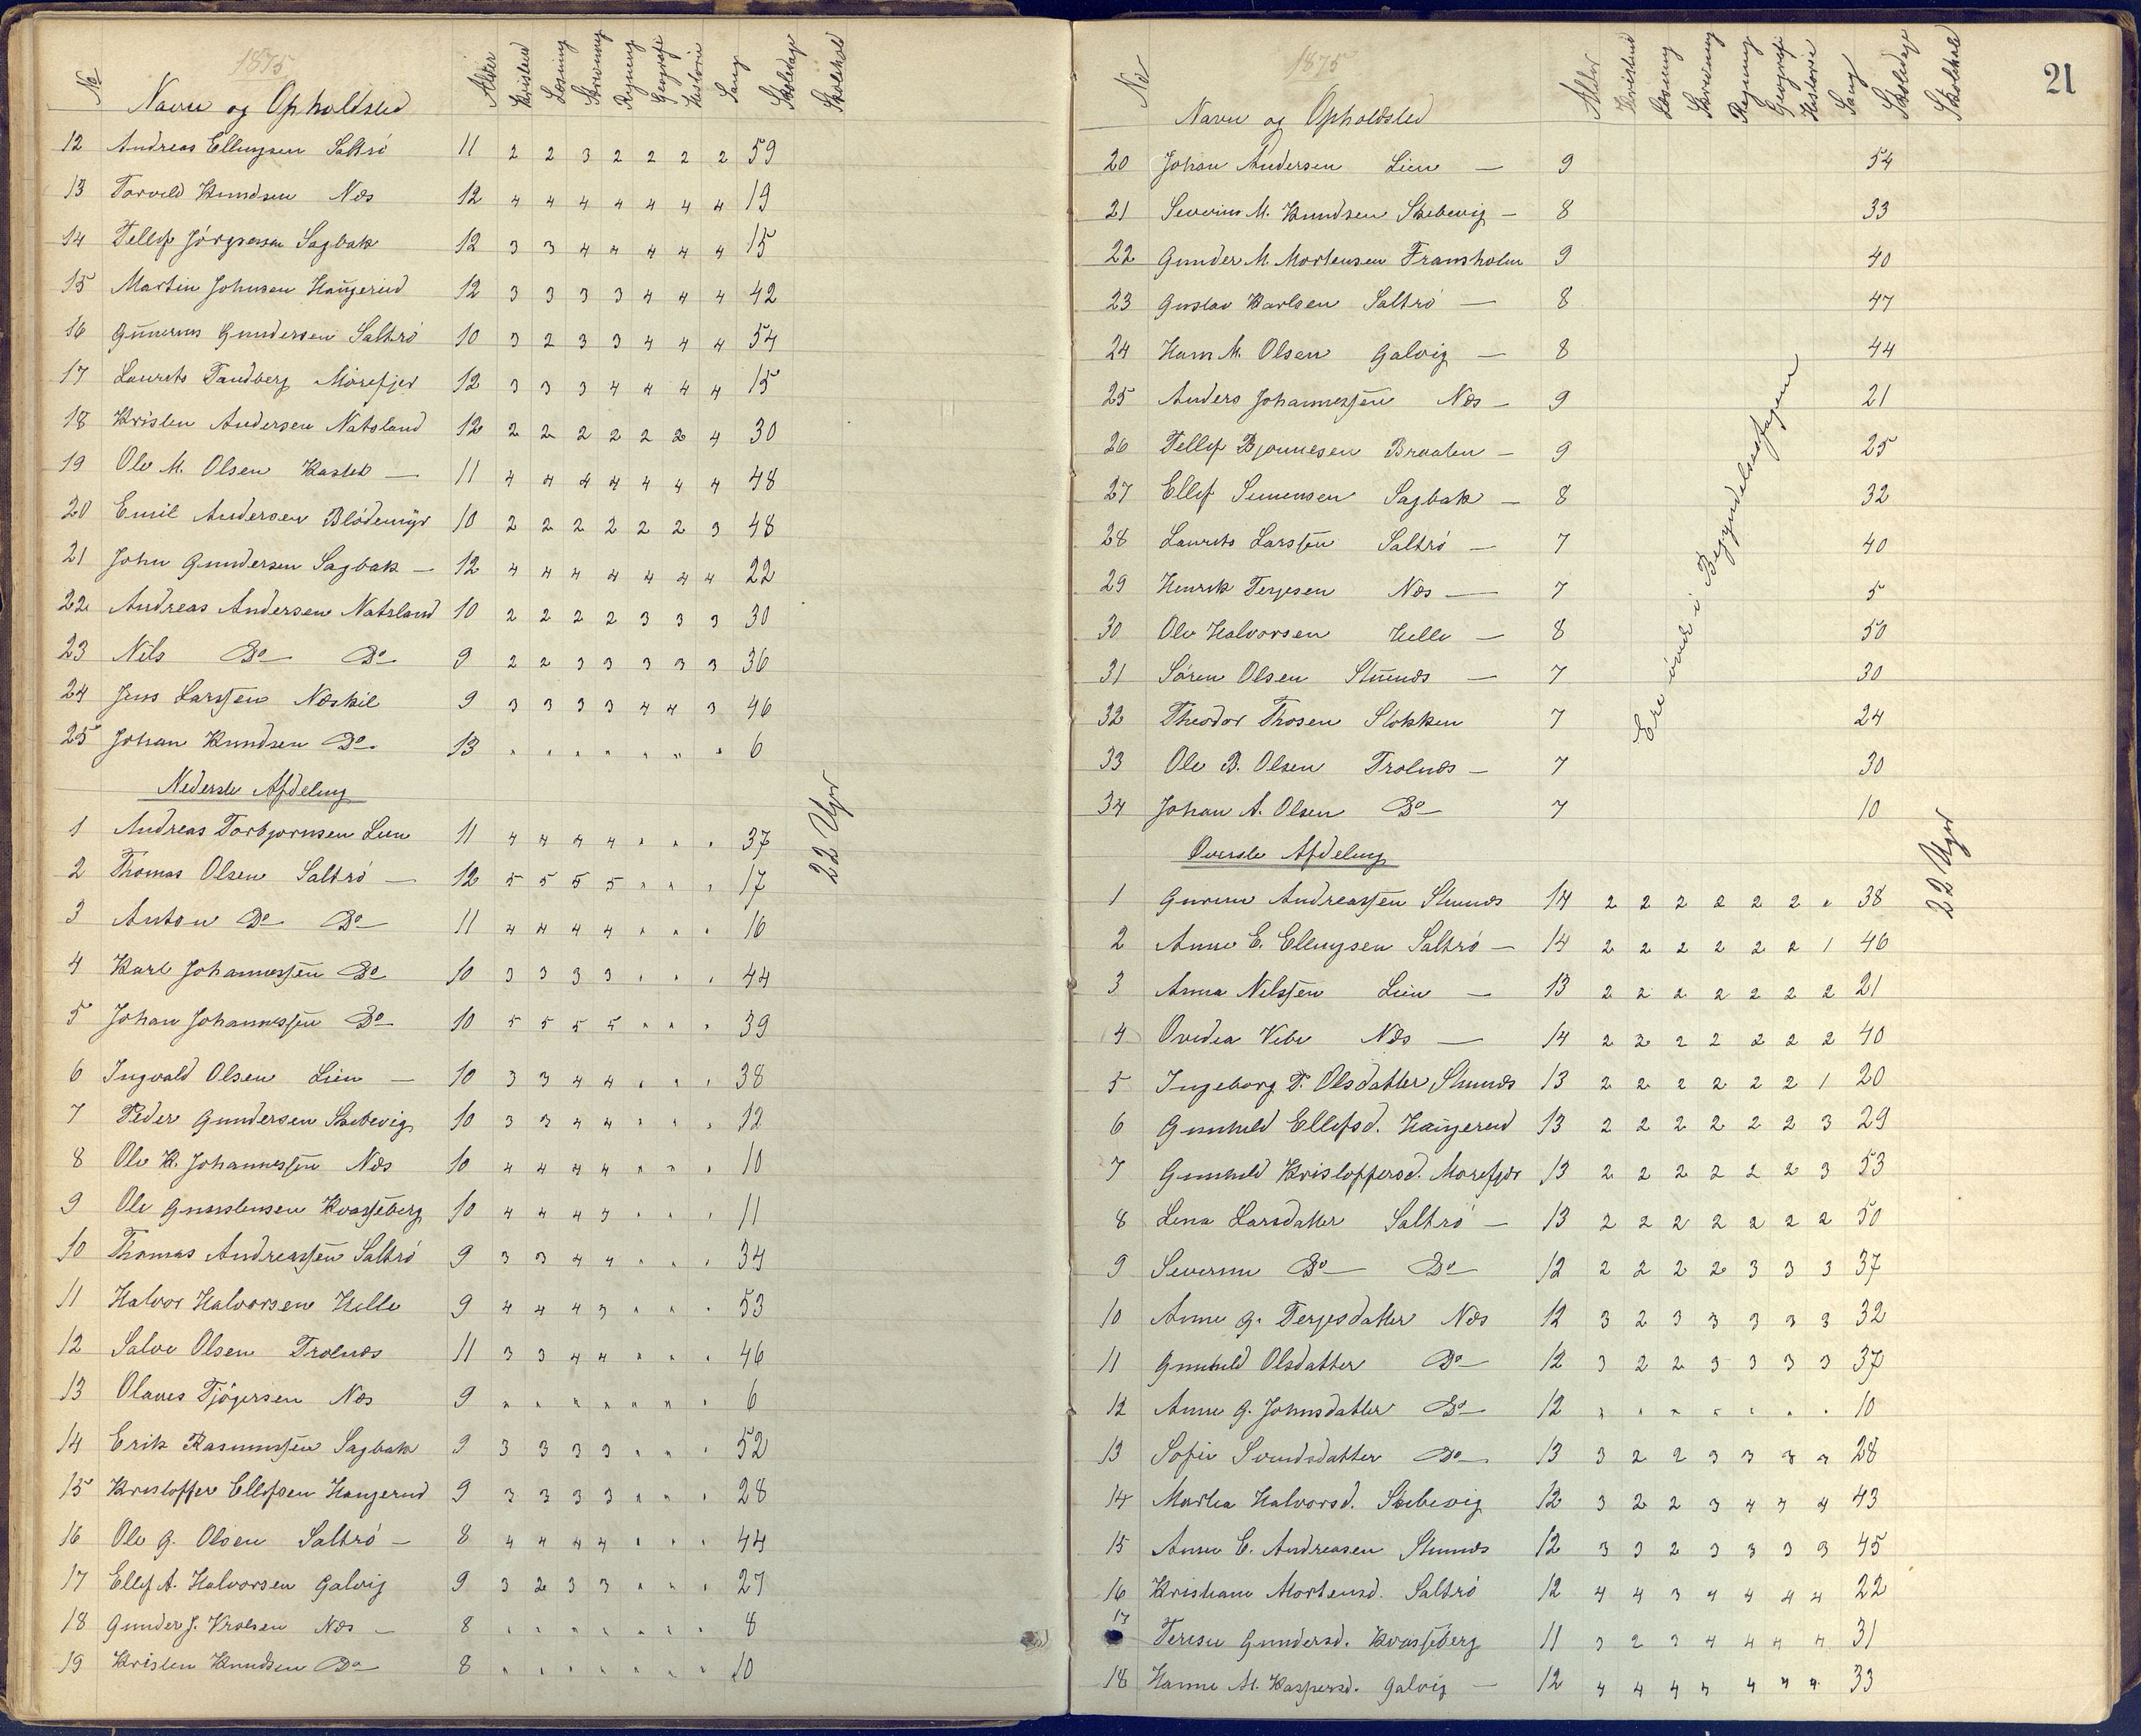 1875
No Navn og Opholdsted Alder Kristend Læsning Skrivning Regning Geografi Historie Sang Skoledage Skolehold
12 Andreas Ellingsen Saltrö 11 2 2 3 2 2 2 2 59
13 Torvild Knudsen Næs 12 4 4 4 4 4 4 4 19
14 Tellef Jörgensen Sagbak 12 3 3 4 4 4 4 4 15
15 Martin Johnsen Haugerud 12 3 3 3 3 4 4 4 42
16 Gunerius Gundersen Saltrö 10 3 2 3 3 4 4 4 54
17 Laurits Tandberg Mörefjer 12 3 3 3 4 4 4 4 15
18 Kristen Andersen Natsland 12 2 2 2 2 2 2 4 30
19 Ole M. Olsen Kastet — 11 4 4 4 4 4 4 4 48
20 Emil Andersen Blödemyr 10 2 2 2 2 2 2 3 48
21 John Gundersen Sagbak — 12 4 4 4 4 4 4 4 22
22 Andreas Andersen Natsland 10 2 2 2 2 3 3 3 30
23 Nils Do Do 9 2 2 3 3 3 3 3 36
24 Jens Larssen Næskil 9 3 3 3 3 4 4 3 46
25 Johan Knudsen Do 13 " " " " " " " 6
Nederste Afdeling
22 Uger
1 Andreas Torbjornsen Lien 11 4 4 4 4 " " " 37
2 Thomas Olsen Saltrö — 12 5 5 5 5 " " " 17
3 Anton Do Do 11 4 4 4 4 " " " 16
4 Karl Johannessen Do 10 3 3 3 3 " " " 44
5 Johan Johannessen Do 10 5 5 5 5 " " " 39
6 Ingvald Olsen Lien — 10 3 3 4 4 " " " 38
7 Peder Gundersen Skibevig 10 3 3 4 4 " " " 12
8 Ole K. Johannessen Næs 10 4 4 4 4 " " " 10
9 Ole Gunstensen Kvasseberg 10 4 4 4 3 " " " 11
10 Thomas Andreassen Saltrö 9 3 3 4 4 " " " 34
11 Halvor Halvorsen Helle 9 4 4 4 3 " " " 53
12 Salve Olsen Trolnæs 11 3 3 4 4 " " " 46
13 Olaves Tjögersen Næs 9 " " " " " " " 6
14 Erik Rasmussen Sagbak 9 3 3 3 3 " " " 52
15 Kristoffer Ellefsen Haugerud 9 3 3 3 3 " " " 28
16 Ole G. Olsen Saltrö — 8 4 4 4 4 " " " 44
17 Ellef A. Halvorsen Galvig 9 3 2 3 3 " " " 27
18 Gunder J. Vrolsen Næs — 8 " " " " " " " 8
19 Kristen Knudsen Do 8 " " " " " " " 10
21
1875
No Navn og Opholdsted Alder Kristend Læsning Skrivning Regning Geografi Historie Sang Skoledage Skolehold
20 Johan Andersen Lien — 9 54
21 Severin M. Knudsen Skibevig — 8 33
22 Gunder M. Mortensen Framsholm 9 40
23 Gustav Karlsen Saltrö — 8 47
24 Hans M. Olsen Galvig — 8 44
25 Anders Johannessen Næs — 9 21
26 Tellef Bjonnesen Braaten — 9 25
27 Ellef Simensen Sagbak — 8 32
28 Laurits Larssen Saltrö — 7 40
29 Henrik Terjesen Næs — 7 5
30 Ole Halvorsen Helle — 8 50
31 Sören Olsen Stuenæs — 7 30
32 Theodor Thosen Stokken 7 24
33 Ole B. Olsen Trolnæs — 7 30
34 Johan A. Olsen Do 7 10
Ere övede i Begyndelsesfagene
Överste Afdeling
22 Uger
1 Gurine Andreassen Stuenæs 14 2 2 2 2 2 2 " 38
2 Anne E. Ellingsen Saltrö — 14 2 2 2 2 2 2 1 46
3 Anna Nilssen Lien — 13 2 2 2 2 2 2 2 21
4 Ovedia Vibe Næs — 14 2 2 2 2 2 2 2 40
5 Ingeborg T. Olsdatter Stuenæs 13 2 2 2 2 2 2 1 20
6 Gunhild Ellefsd. Haugerud 13 2 2 2 2 2 2 3 29
7 Gunhild Kristoffersd. Morefjær 13 2 2 2 2 2 2 3 53
8 Lena Larsdatter Saltrö — 13 2 2 2 2 2 2 2 50
9 Severine Do Do 12 2 2 2 2 3 3 3 37
10 Anne G. Terjesdatter Næs 12 3 2 3 3 3 3 3 32
11 Gunhild Olsdatter Do 12 3 2 2 3 3 3 3 37
12 Anne G. Johnsdatter Do 12 " " " " " " " 10
13 Sofie Svendsdatter Do 13 3 2 2 3 3 3 3 28
14 Marthea Halvorsd. Skibevig 12 3 2 2 3 4 3 4 43
15 Anne E. Andreasen Stuenæs 12 3 3 2 3 3 3 3 45
16 Kristiane Mortensd. Saltrö 12 4 4 3 4 4 4 4 22
17 Terese Gundersd. Kvasseberg 11 3 2 3 4 4 4 4 31
18 Hanne M. Kaspersd. Galvig — 12 4 4 4 4 4 4 4 33